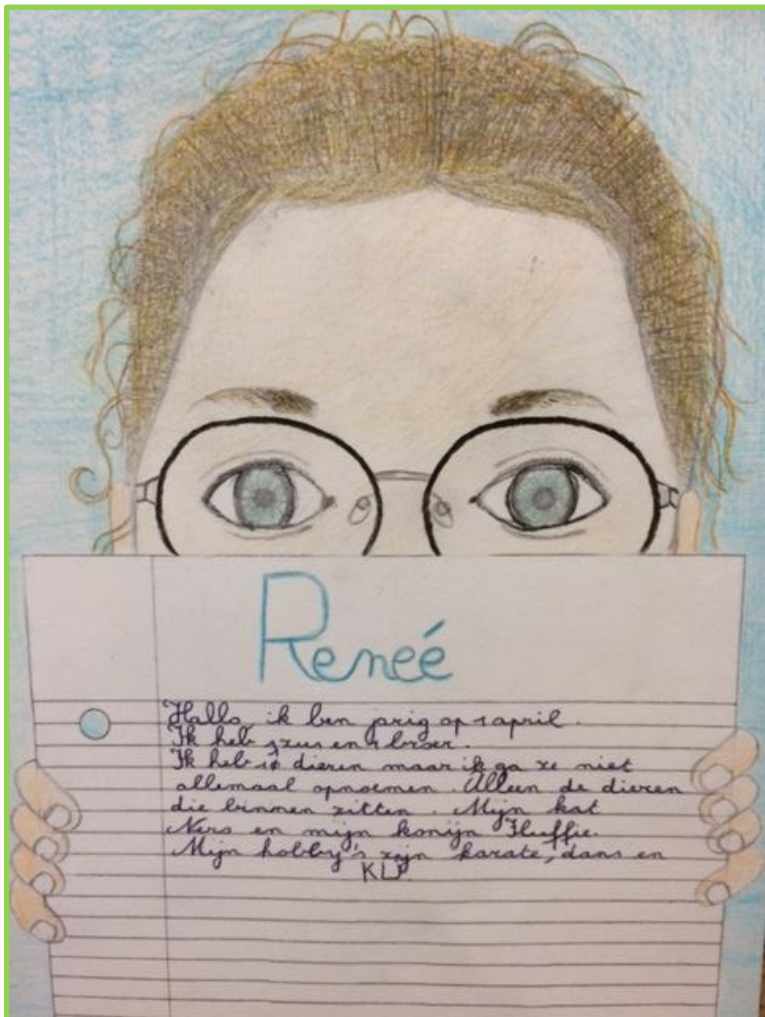 Reneé
Hallo, ik ben jarig op 1 april.
Ik heb 1 zus en 1 broer.
Ik heb dieren maar ik ga ze niet
allemaal opnoemen. Alleen de dieren
die binnen zitten. Mijn kat
Nero en mijn konijn Fluffie.
Mijn hobby's zijn karate, dans en